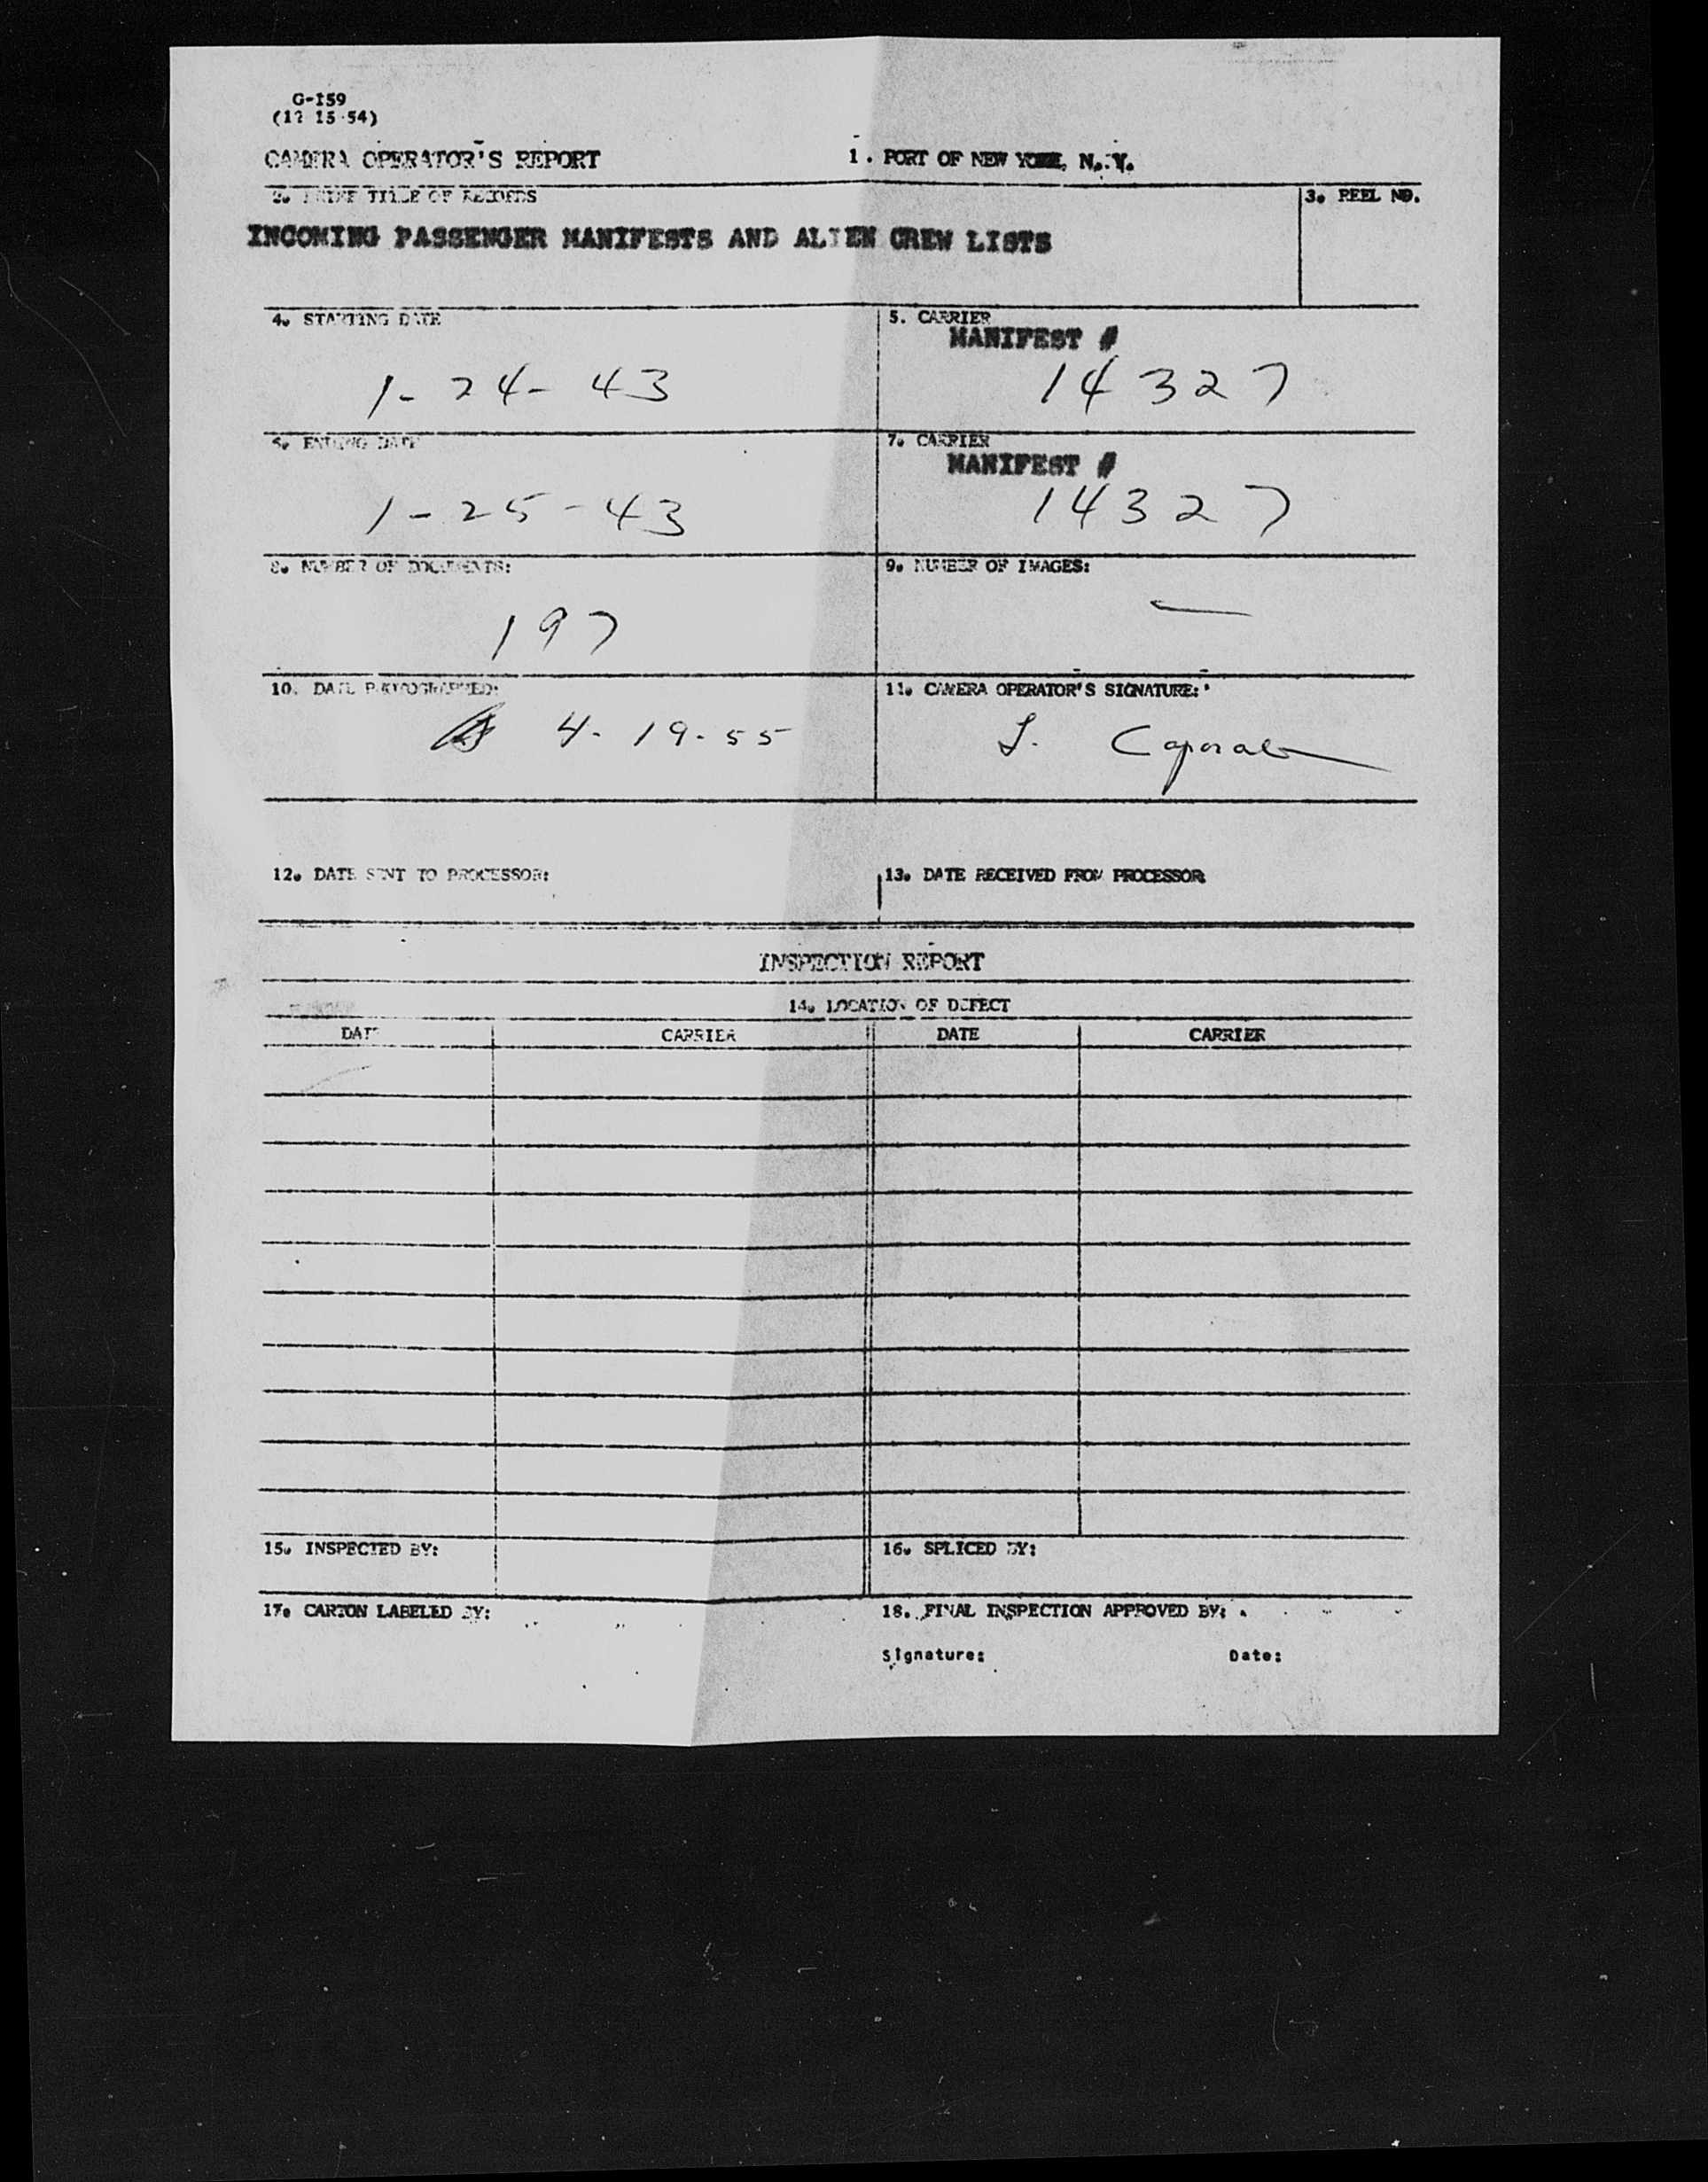 G-159
(12 15-54)
CAMERA OPERATOR'S REPORT
1. PORT OF NEW YORK, N. Y.
2. PRIME TITLE OF RECORDS
3. REEL NO.
INCOMING PASSENGER MANIFESTS AND ALIEN CREW LISTS
4. STARTING DATE
5. CARRIER
MANIFEST #
1-24-43
14327
6. ENDING DATE
7. CARRIER
MANIFEST #
1-25-43
14327
8. NUMBER OF DOCUMENTS:
9. NUMBER OF IMAGES:
197
—
10. DATE PHOTOGRAPHED:
11. CAMERA OPERATOR'S SIGNATURE:
4-19-55
12. DATE SENT TO PROCESSOR:
13. DATE RECEIVED FROM PROCESSOR
INSPECTION REPORT
14. LOCATION OF DEFECT
DATE CARRIER DATE CARRIER
15. INSPECTED BY:
16. SPLICED BY:
17. CARTON LABELED BY:
18. FINAL INSPECTION APPROVED BY:
Signature: Date: